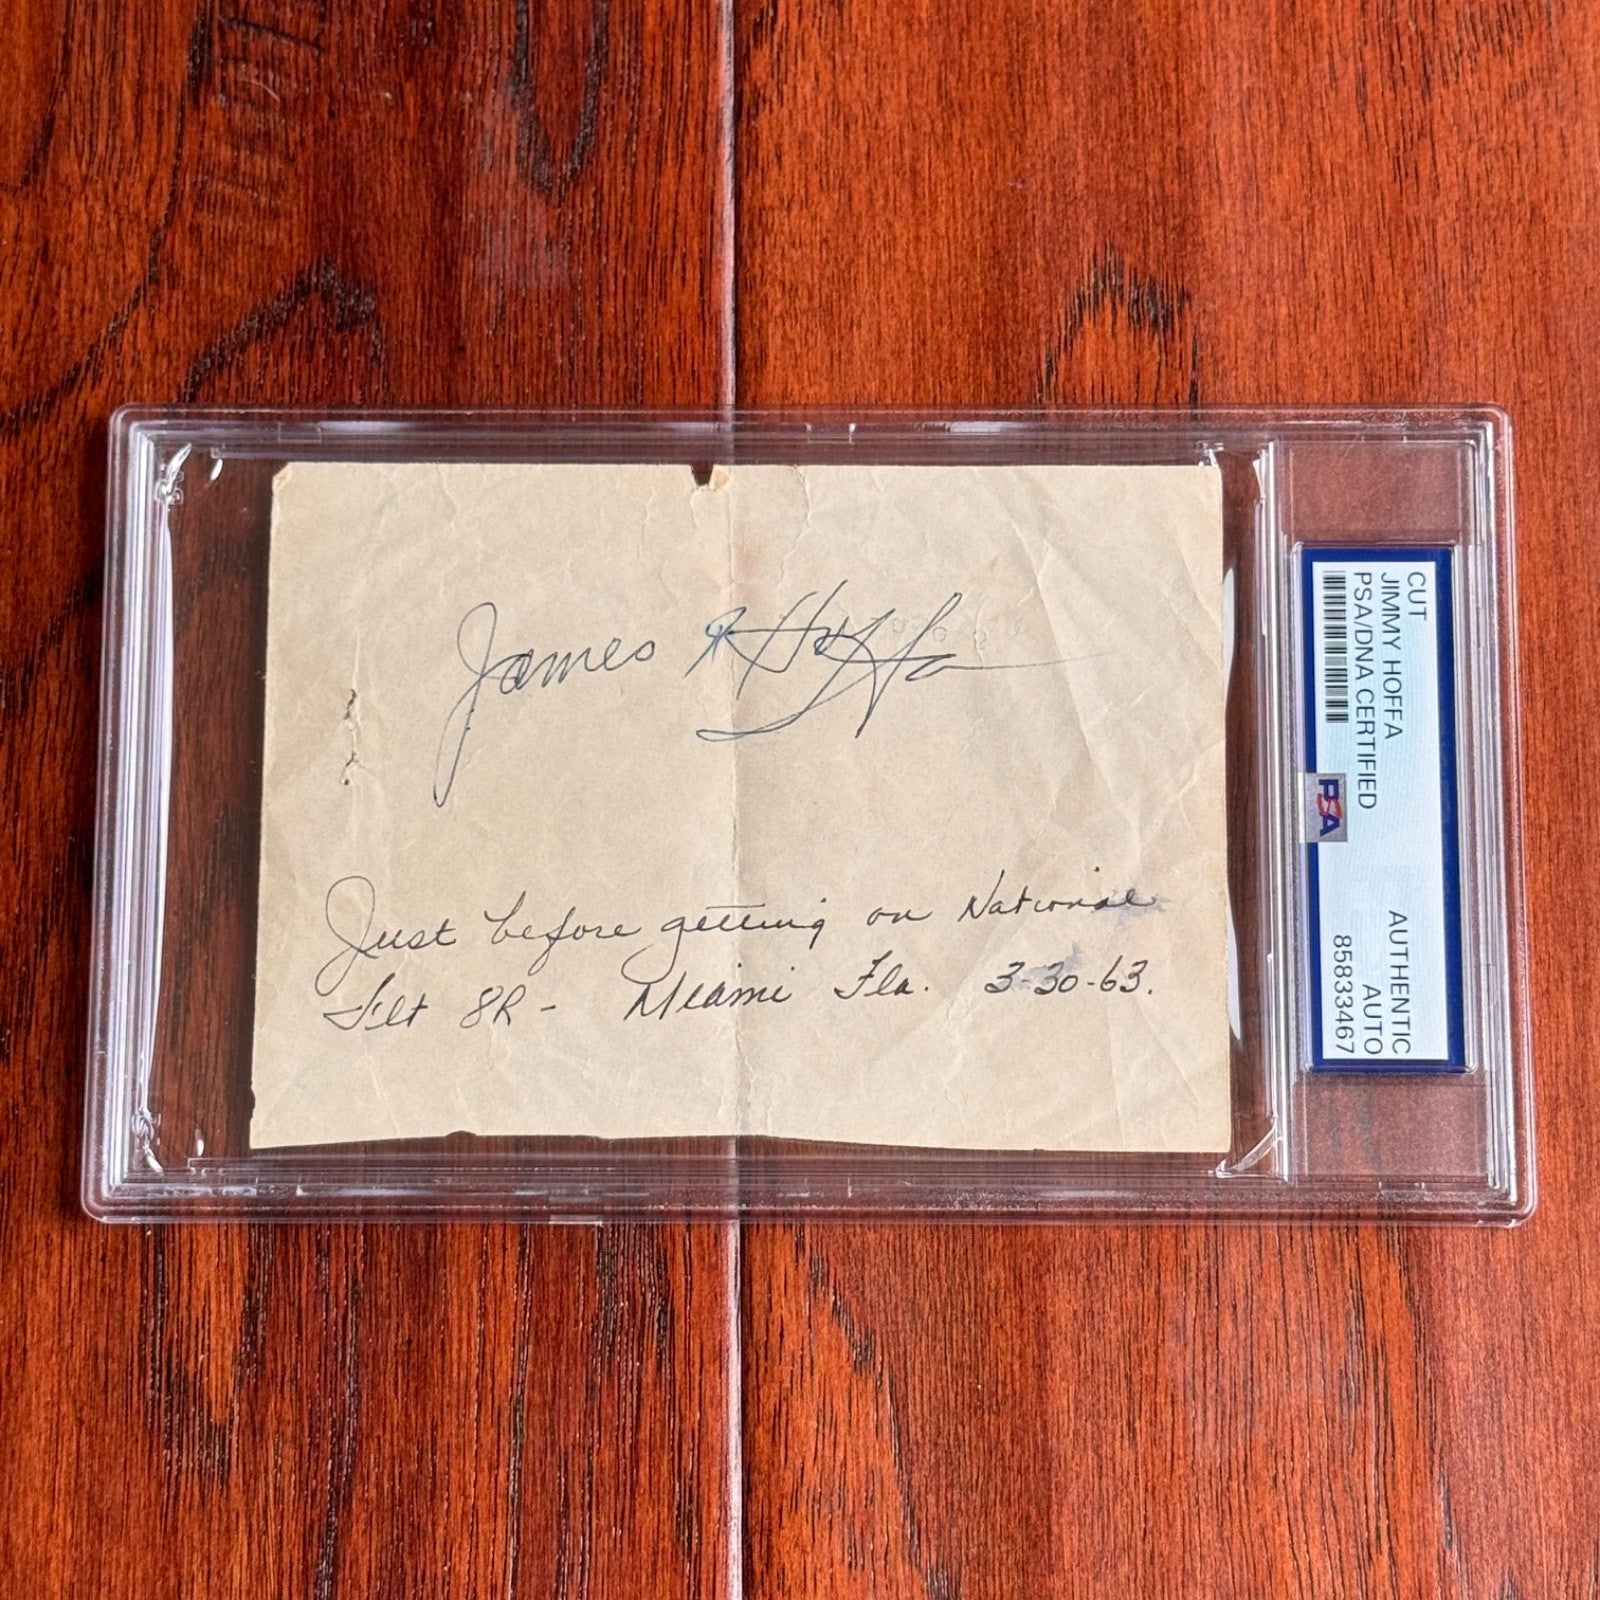 James R Hoffa
Just before getting on National
Flt 8R - Miami Fla. 3-30-63.
CUT
JIMMY HOFFA
PSA/DNA CERTIFIED
PSA
AUTHENTIC
AUTO
85833467